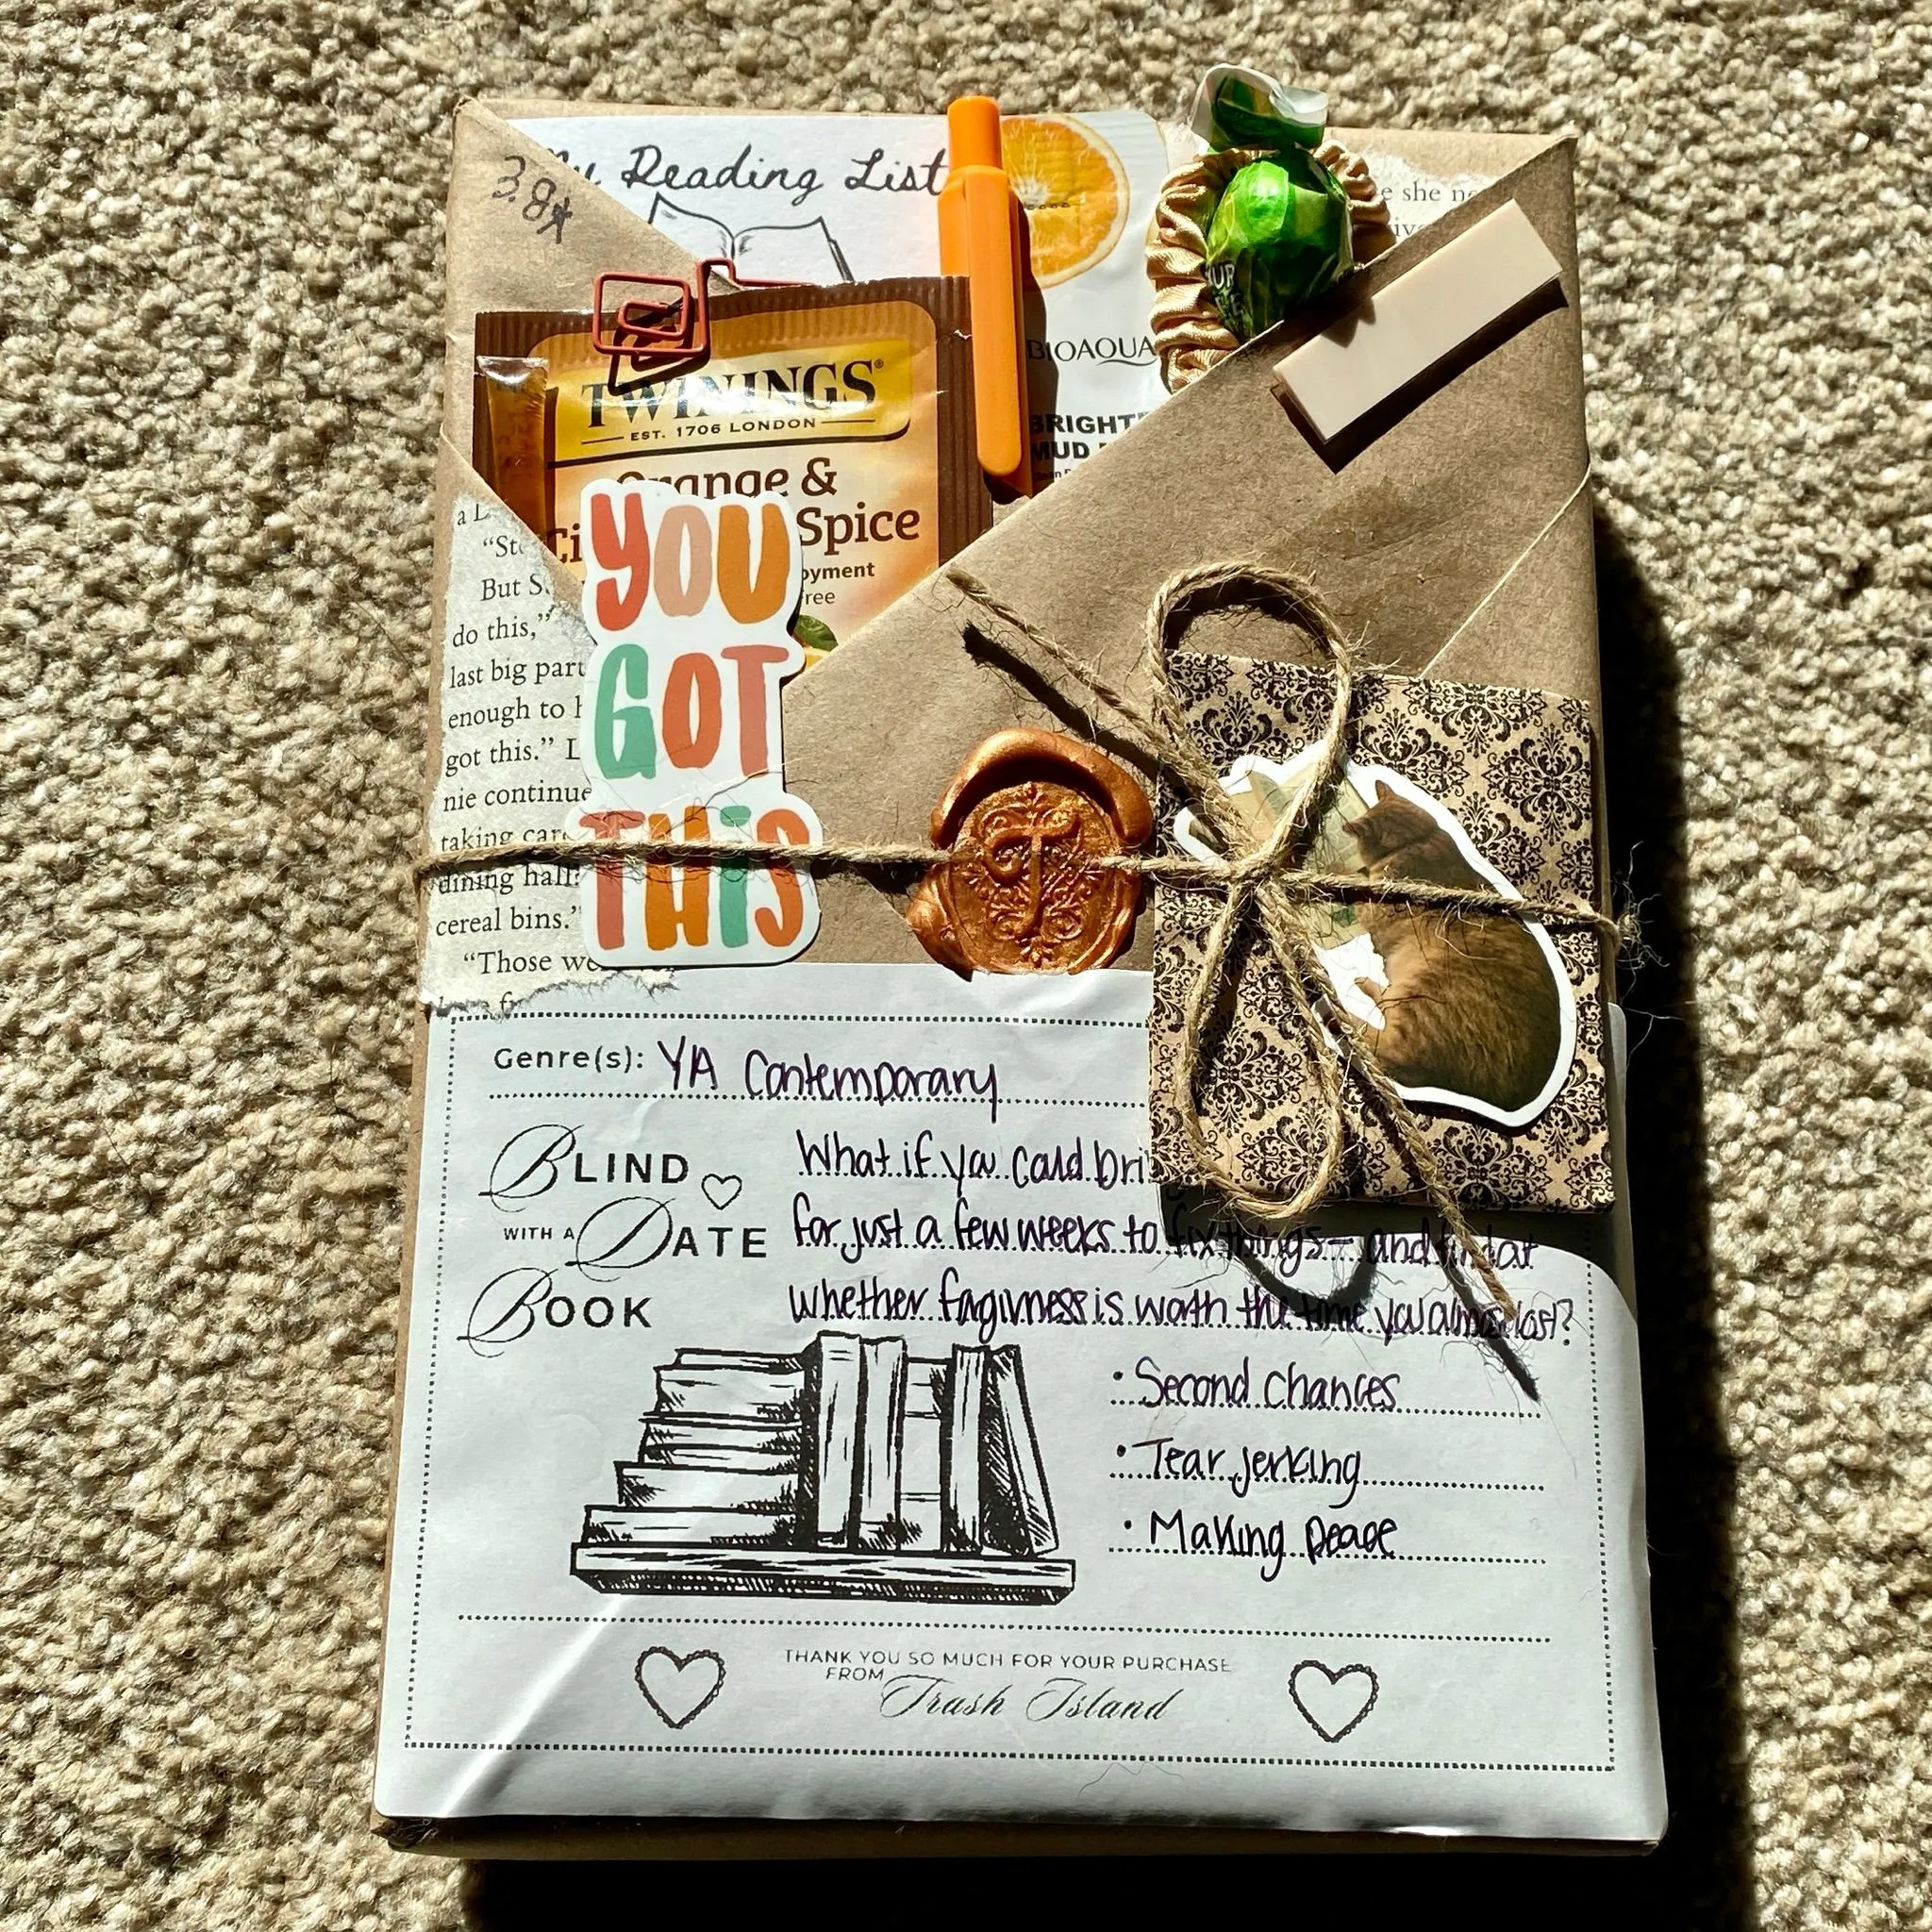 My Reading List
3.8★
e she ne
BIOAQUA
BRIGHT
MUD
TWININGS®
EST. 1706 LONDON
Orange &
Ci Spice
oyment
ree
YOU
GOT
THiS
a L
"St
But S
do this,"
last big part
enough to h
got this." L
nie continue
taking care
dining hall?
cereal bins."
"Those we
T
Genre(s): YA Contemporary
BLIND
WITH A DATE
BOOK
What if you could bri
for just a few weeks to fix things— and find out
whether forgiveness is worth the time you almost lost?
• Second Chances
• Tear jerking
• Making peace
THANK YOU SO MUCH FOR YOUR PURCHASE
FROM Trash Island